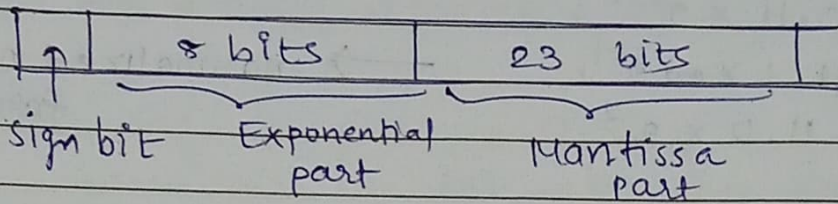 8 bits 23 bits
sign bit Exponential Mantissa
part part